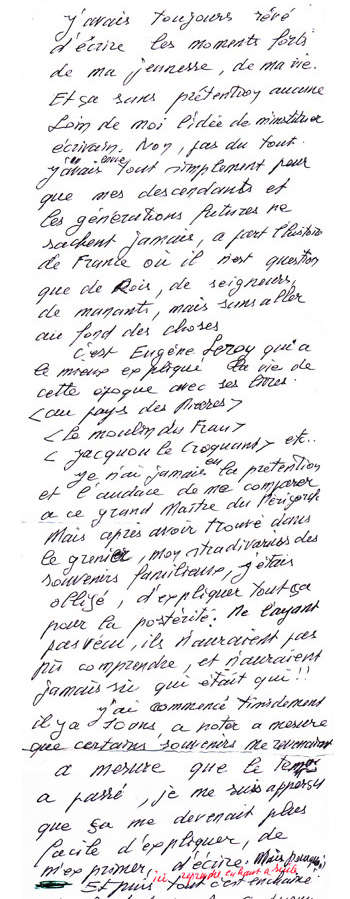 J'avais toujours rêvé
d'écrire les moments forts
de ma jeunesse, de ma vie.
Et ça sans prétention aucune
Loin de moi l'idée de m'instituer
écrivain. Non, pas du tout.
J'avais tout simplement peur
que mes descendants et
les générations futures ne
sachent jamais, a part l'histoire
de France où il n'est question
que de Rois, de seigneurs,
de manants, mais sans aller
au fond des choses
C'est Eugène Leroy qui a
le mieux expliqué la vie de
cette époque avec ses livres.
< au pays des Pierres >
< Le moulin du Frau >
< Jacquou le Croquant > etc..
Je n'ai jamais eu la prétention
et l'audace de me comparer
a ce grand Maître du Périgord
Mais après avoir trouvé dans
le grenier, mon stradivarius des
souvenirs familiaux, j'étais
obligé, d'expliquer tout ça
pour la postérité. Ne l'ayant
pas vécu, ils n'auraient pas
pu comprendre, et n'auraient
jamais su qui était qui !!
J'ai commencé timidement
il y a 10 ans, a noter a mesure
que certains souvenirs me revenaient
a mesure que le temps
a passé, je me suis apperçu
que ça me devenait plus
facile d'expliquer, de
m'exprimer, d'écrire. Mais pourquoi
ici reprendre en haut a suite
Et puis tout c'est enchaîné !